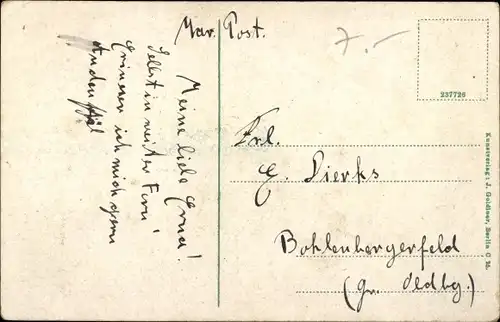 Mar. Post.
7.-
237726
Meine liebe Erna!
Selbst in weiter Fern'
Erinnere ich mich gern
An den
Frl.
E. Dierks
Bohlenbergerfeld
(Gr. Oldbg.)
Kunstverlag: J. Goldiner, Berlin C